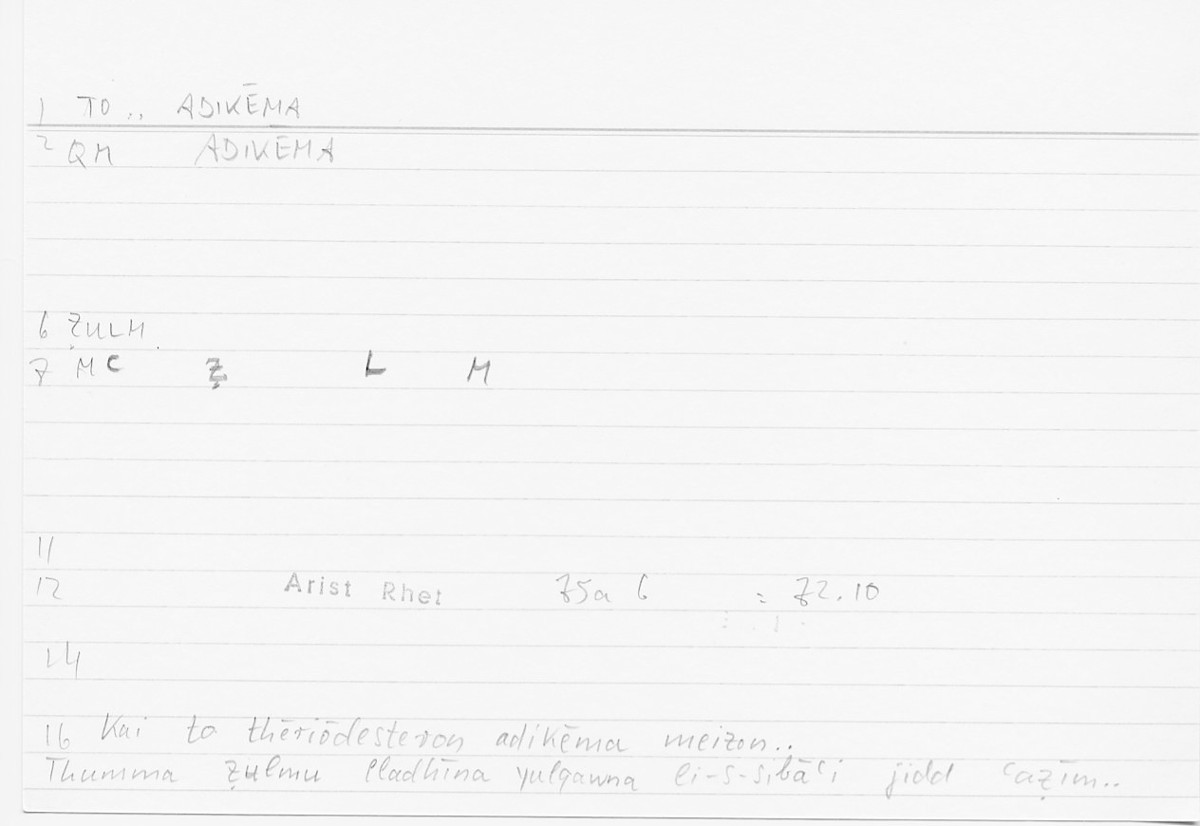 1 TO .. ADIKĒMA
2 QM ADIKĒMA
6 ẒULM
7 MC Ẓ L M
11
12 Arist Rhet 75a 6 = 72.10
14
16 Kai to thēriōdesteron adikēma meizon..
Thumma ẓulmu lladhīna yulqawna li-s-sibāʿi jidd ʿaẓīm..